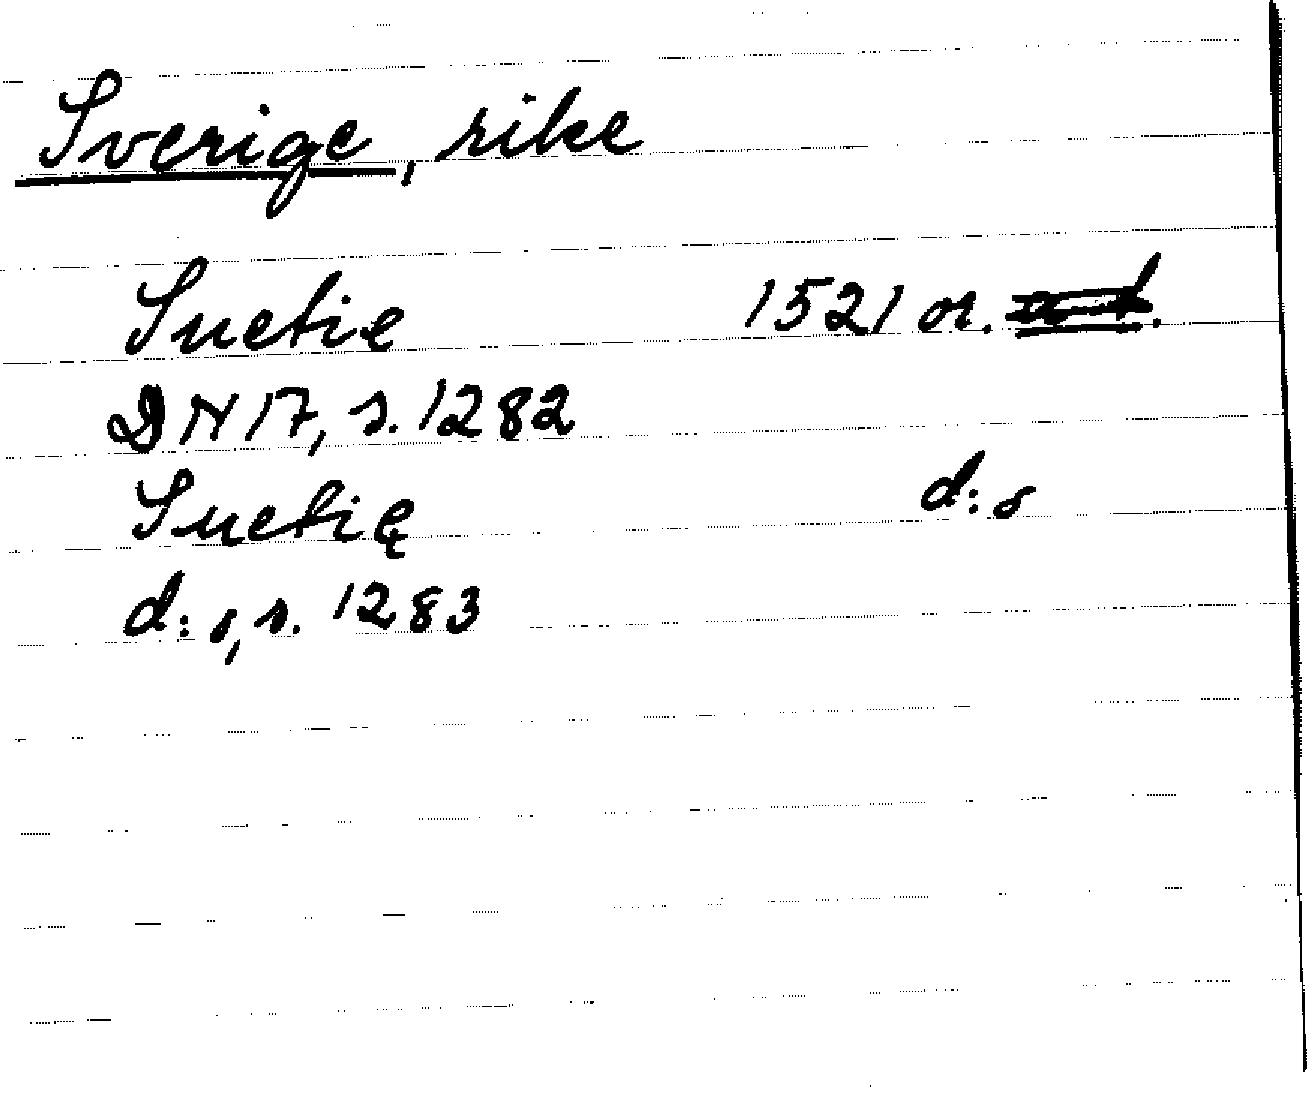 Sverige, rike
Suetie 1521 or.
DN 17, s. 1282
Suetię d:o
d:o, s. 1283